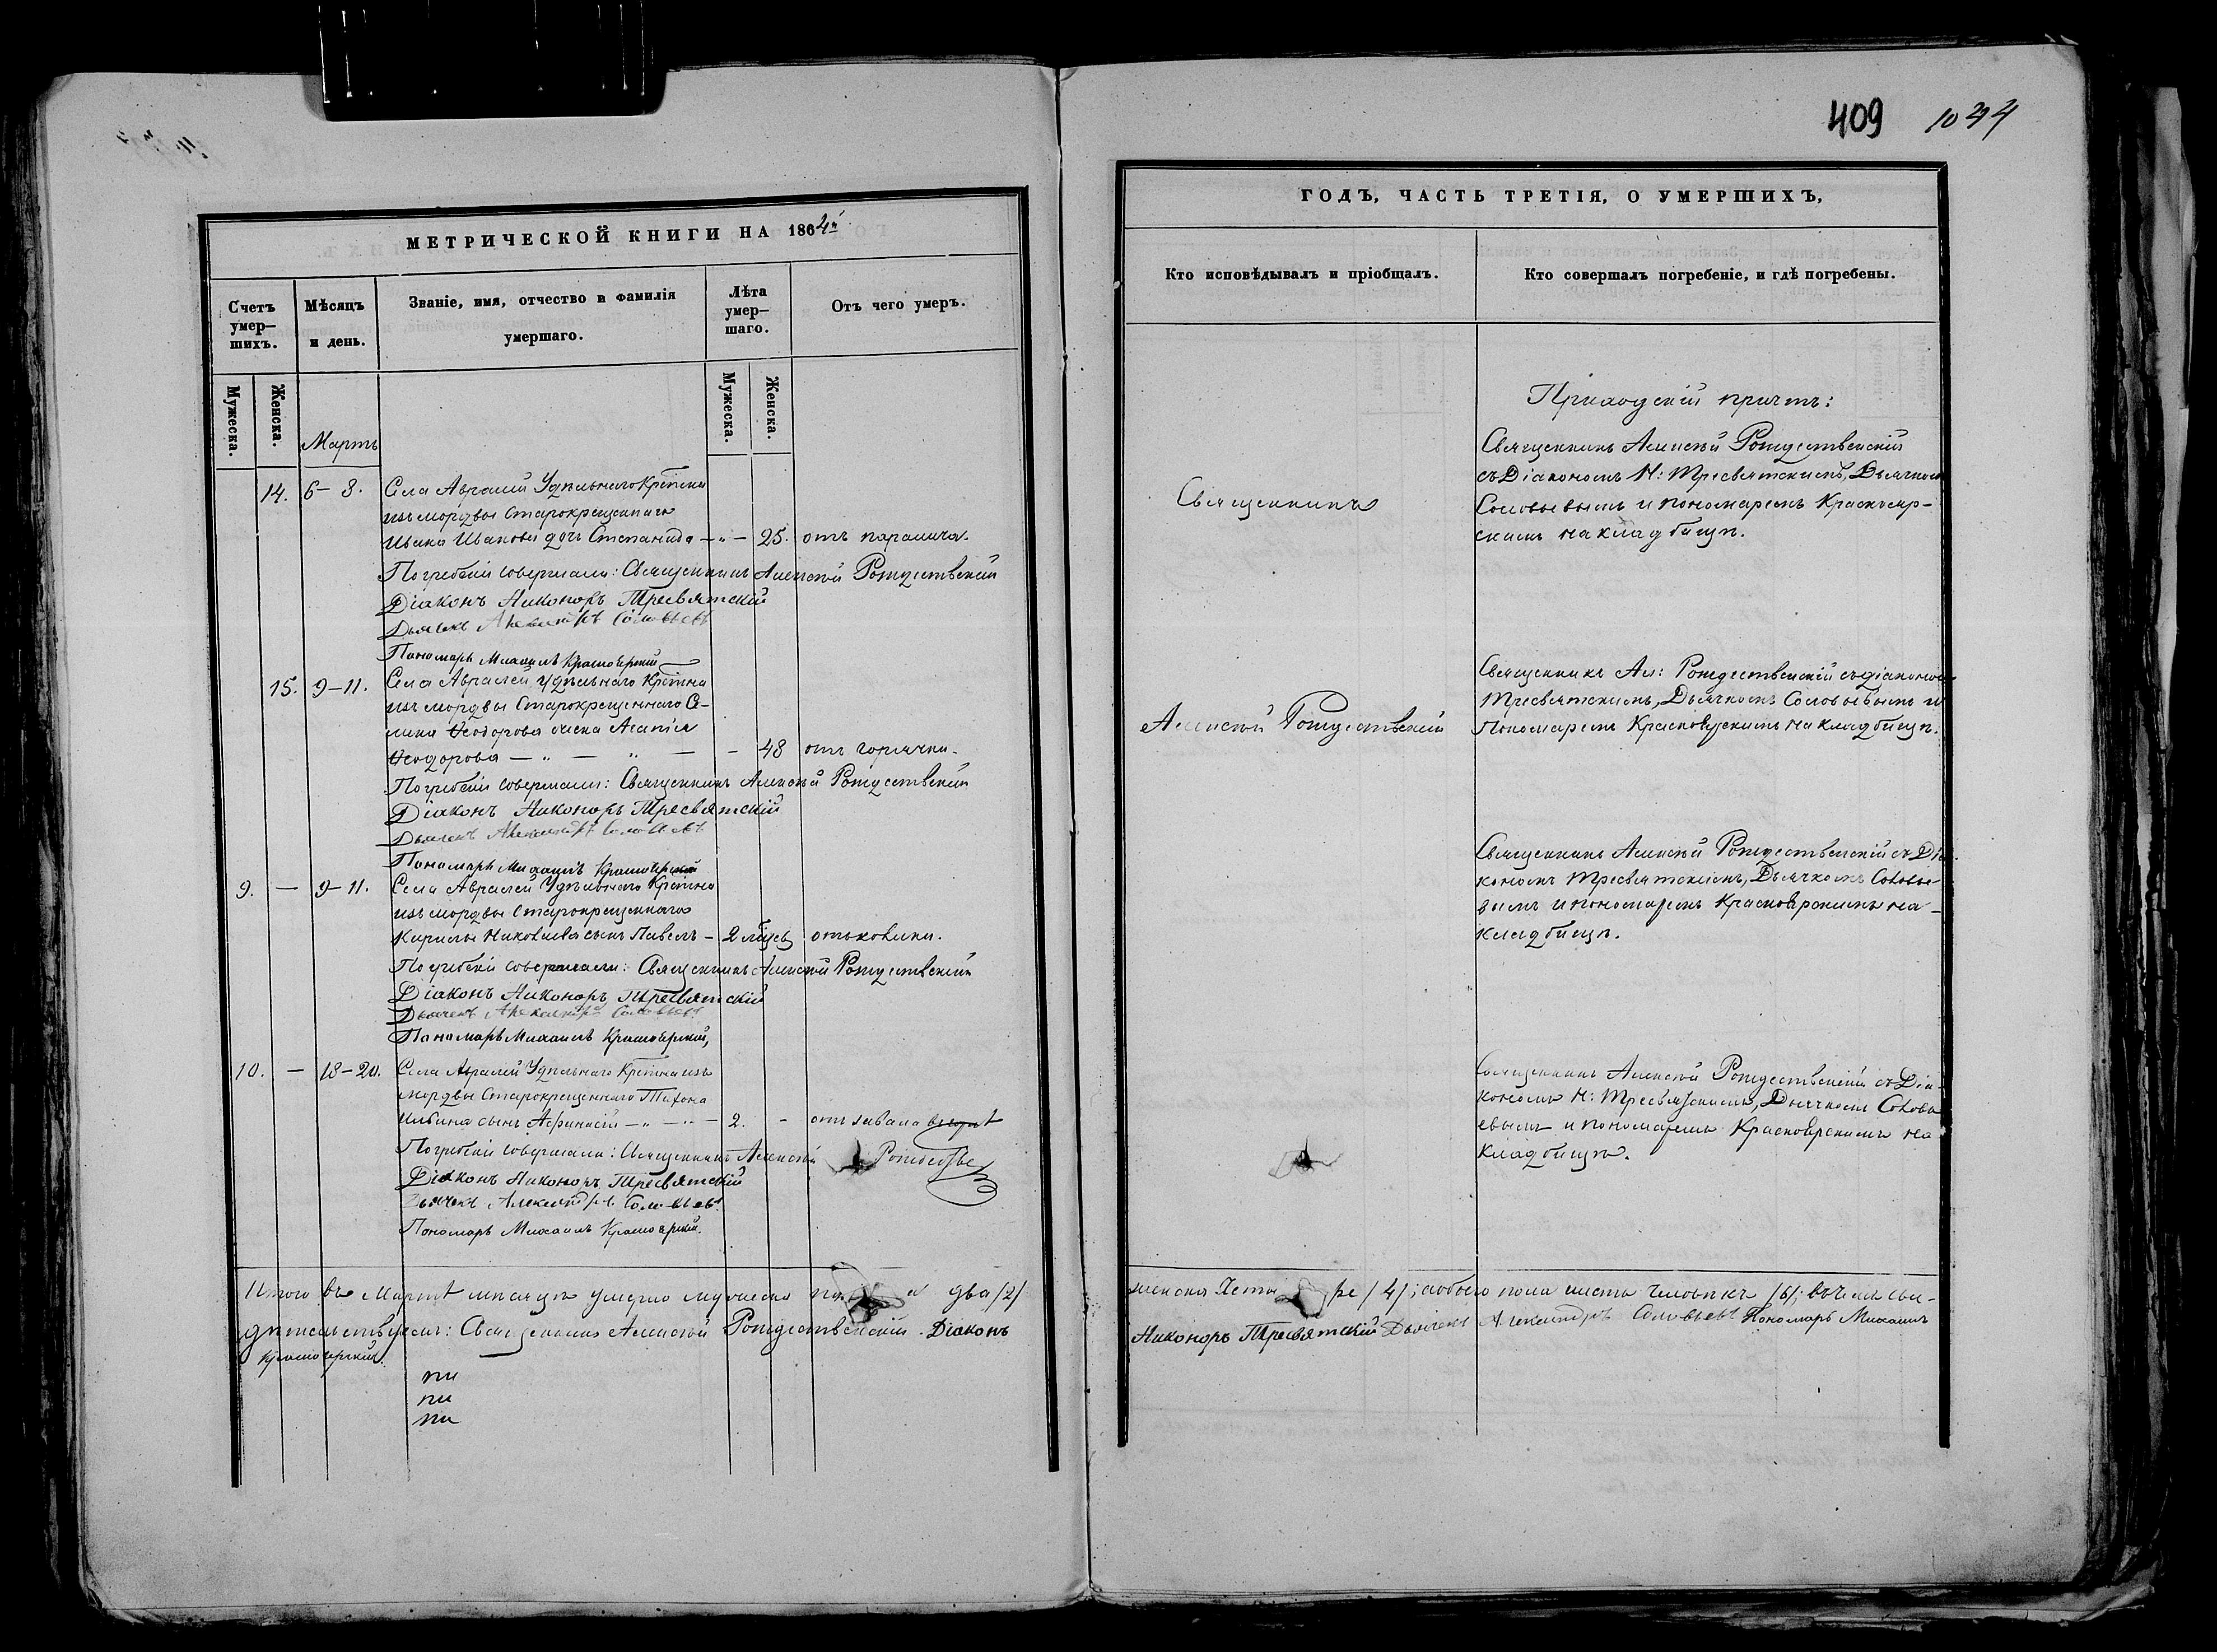 409 1044
МЕТРИЧЕСКОЙ КНИГИ НА 1864й
Счетъ умер-шихъ.
Мѣсяцъ и день.
Званіе, имя, отчество и фамилія умершаго.
Лѣта умер-шаго.
Отъ чего умеръ.
Мужеска.
Женска.
Мужеска.
Женска.
Мартъ
14. 6-8. Села Авралей Удѣльнаго Крестьяна
изъ мордвы Старокрещеннаго
Ивана Иванова дочь Степанида — „ — 25. отъ паралича.
Погребеніе совершали: Священникъ Алексѣй Рождественскій
Діаконъ Никоноръ Тресвятскій
Дьячекъ Александръ Соловьевъ
Пономарь Михаилъ Красноярскій
15. 9-11. Села Авралей Удѣльнаго Крестьяна
изъ мордвы Старокрещеннаго Се-
мена Ѳеодорова жена Агапія
Ѳеодорова — „ — „ — - 48 отъ горячки.
Погребеніе совершали: Священникъ Алексѣй Рождественскій
Діаконъ Никоноръ Тресвятскій
Дьячекъ Александръ Соловьевъ
Пономарь Михаилъ Красноярскій
9. — 9-11. Села Авралей Удѣльнаго Крестьяна
изъ мордвы Старокрещеннаго
Кирилы Николаева сынъ Павелъ -
Погребеніе совершали: Священникъ Алексѣй Рождественскій
Діаконъ Никоноръ Тресвятскій
Дьячекъ Александръ Соловьевъ
Пономарь Михаилъ Красноярскій,
10. — 18-20. Села Авралей Удѣльнаго Крестьяна изъ
мордвы Старокрещеннаго Тихона
Ильина сынъ Афанасій — „ — „ — 2. -
Погребеніе совершали: Священникъ Алексѣй
Діаконъ Никоноръ Тресвятскій
Дьячекъ Александръ Соловьевъ
Пономарь Михаилъ Красноярскій.
Итого въ Мартѣ мѣсяцѣ умерло мужеска два /2/
дѣтельствуемъ: Священникъ Алексѣй Рождественскій. Діаконъ
Красноярскій.
ГОДЪ, ЧАСТЬ ТРЕТІЯ, О УМЕРШИХЪ,
Кто исповѣдывалъ и пріобщалъ.
Кто совершалъ погребеніе, и гдѣ погребены.
Приходскій причтъ:
Священникъ Алексѣй Рождественскій
съ Діакономъ Н: Тресвятскимъ, Дьячкомъ
Священникъ
Соловьевымъ и пономаремъ Краснояр-
скимъ на кладбищѣ.
Священникъ Ал: Рождественскій съ діакономъ
Тресвятскимъ, Дьячкомъ Соловьевымъ и
Алексѣй Рождественскій
Пономаремъ Красноярскимъ на кладбищѣ.
Священникъ Алексѣй Рождественскій съ Діа-
кономъ Тресвятскимъ, Дьячкомъ Соловье-
вымъ и пономаремъ Красноярскимъ на-
кладбищѣ.
Священникъ Алексѣй Рождественскій съ Діа-
кономъ Н: Тресвятскимъ, Дьячкомъ Соловь
евымъ и пономаремъ Красноярскимъ на
кладбищѣ.
женска /4/; обоего пола шесть человѣкъ /6/; въ чемъ сви-
Никоноръ Тресвятскій Дьячекъ Александръ Соловьевъ Пономарь Михаилъ